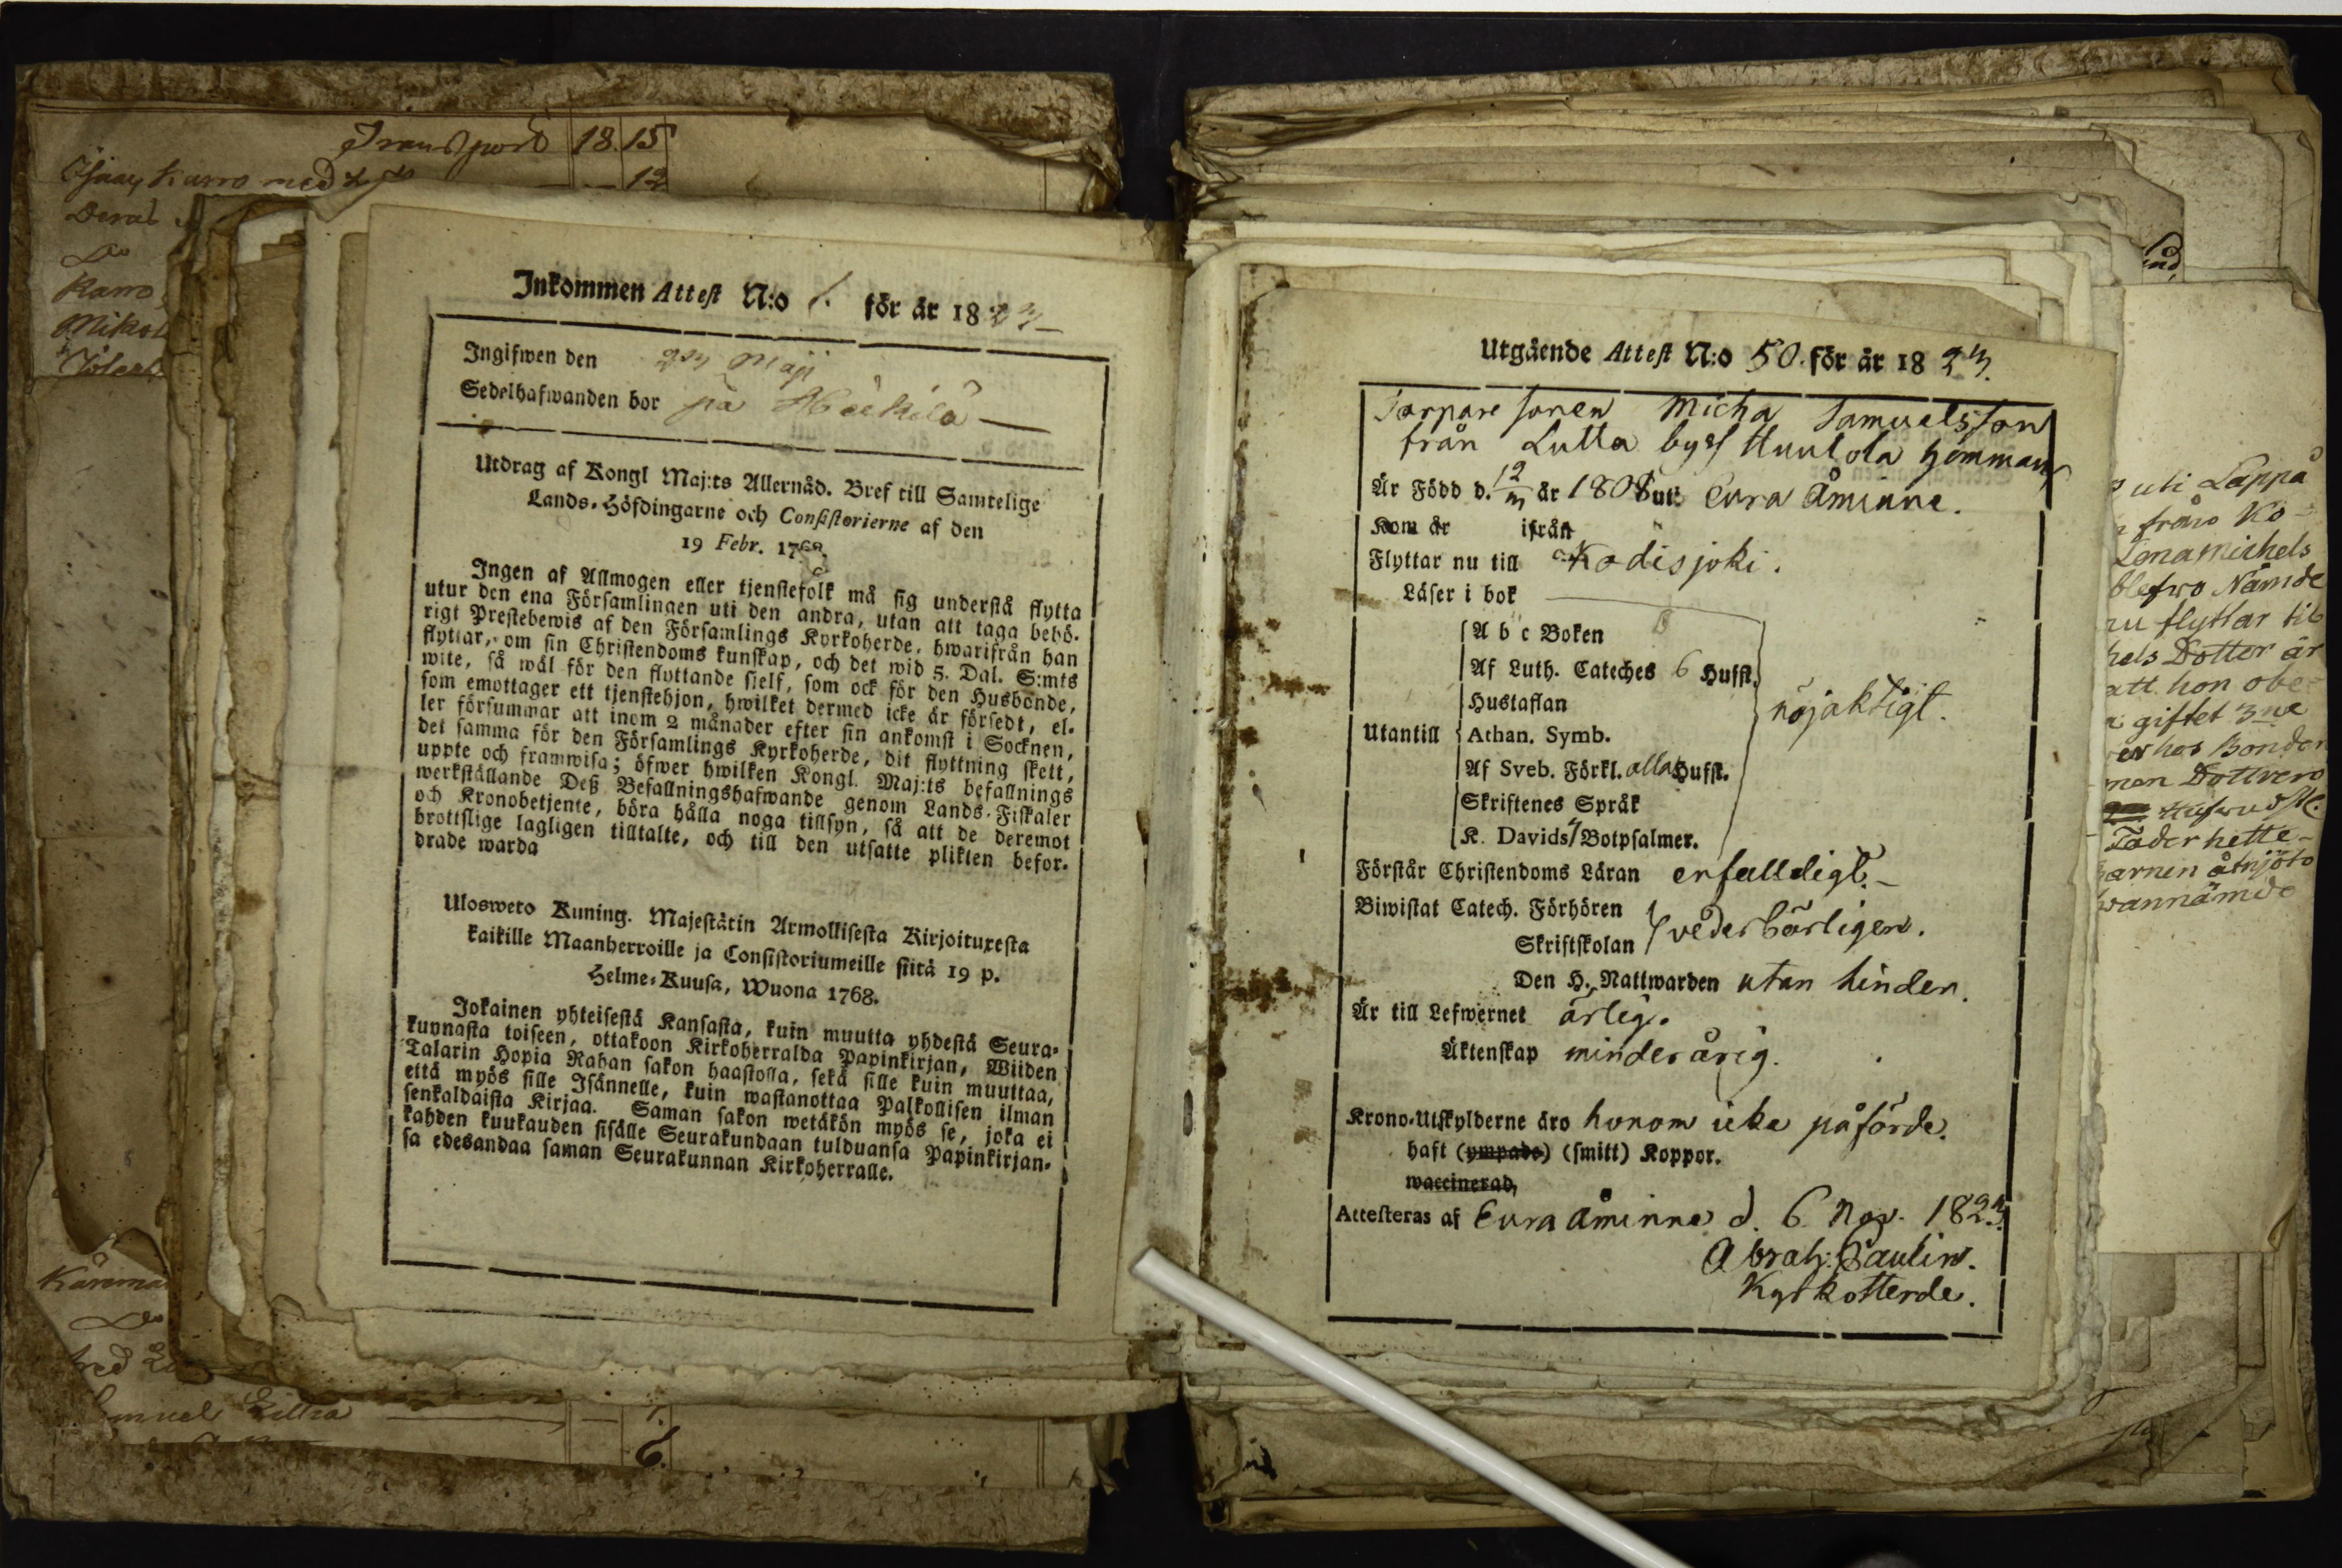 Transport 18. 15
12
Deral
Do
Karro
Mikel
Inkommen Attest N:o 1. för år 1823
Ingifwen den Maji
Sedelhafwanden bor på Heikilä
Utdrag af Kongl Maj:ts Allernåd. Bref till Samtelige
Lands-Höfdingarne och Consistorierne af den
19 Febr. 1768.
Ingen af Allmogen eller tjenstefolk må sig understå flytta
utur den ena Församlingen uti den andra, utan att taga behö-
rigt Prestebewis af den Församlings Kyrkoherde, hwarifrån han
flyttar, om sin Christendoms kunskap, och det wid 5. Dal. S:mts
wite, så wäl för den flyttande sielf, som ock för den Husbonde,
som emottager ett tjenstehjon, hwilket dermed icke är försedt, el-
ler försummar att inom 2 månader efter sin ankomst i Socknen,
det samma för den Församlings Kyrkoherde, dit flyttning skett,
uppte och framwisa; öfwer hwilken Kongl. Maj:ts befallnings
werkställande Deß Befallningshafwande genom Lands-Fiskaler
och Kronobetjente, böra hålla noga tillsyn, så att de deremot
brottslige lagligen tilltalte, och till den utsatte plikten befor-
drade warda
Ulosweto Kuning. Majestätin Armollisesta Kirjoituxesta
kaikille Maanherroille ja Consistoriumeille siitä 19 p.
Helme-Kuusa, Wuona 1768.
Jokainen yhteisestä Kansasta, kuin muutta yhdestä Seura-
kunnasta toiseen, ottakoon Kirkoherralda Papinkirjan, Wiiden
Talarin Hopia Rahan sakon haastolla, sekä sille kuin muuttaa,
että myös sille Isännelle, kuin wastanottaa Palkollisen ilman
senkaldaista Kirjaa. Saman sakon wetäkön myös se, joka ei
kahden kuukauden sisälle Seurakundaan tulduansa Papinkirjan-
sa edesandaa saman Seurakunnan Kirkoherralle.
Do
1.
6.
Utgående Attest N:o 50. för år 1823.
Torpare sonen Micha Samuelsson
från Lutta bys Huulola hemman
Är Född d. 12/3 år 1808 uti Eura Åminne.
Kom år ifrån
Flyttar nu till Kodisjoki.
Läser i bok
A b c Boken
Af Luth. Cateches 6 Hufst.
Hustaflan nöjaktigt.
Utantill Athan. Symb.
Af Sveb. Förkl. alla Hufst.
Skriftenes Språk
K. Davids 7 Botpsalmer.
Förstår Christendoms Läran enfalldigt.
Biwistat Catech. Förhören
Skriftskolan vederbörligen.
Den H. Nattwarden utan hinder.
Är till Lefwernet ärlig.
Äktenskap minderårig.
Krono-Utskylderne äro honom icke påförde.
haft (ympade) (smitt) Koppor.
waccinerad,
Attesteras af Eura Åminne d. 6 Nov. 1823
Abrah: Paulin.
Kyrkoherde.
uti Lappå
från Ko-
Lenamichels
blefwo Nämde
nu flyttar til
hels Dotter är
att hon obe-
giftet 3ne
hos Bonden
Fader hette
arnen åtnjöto
wannämde